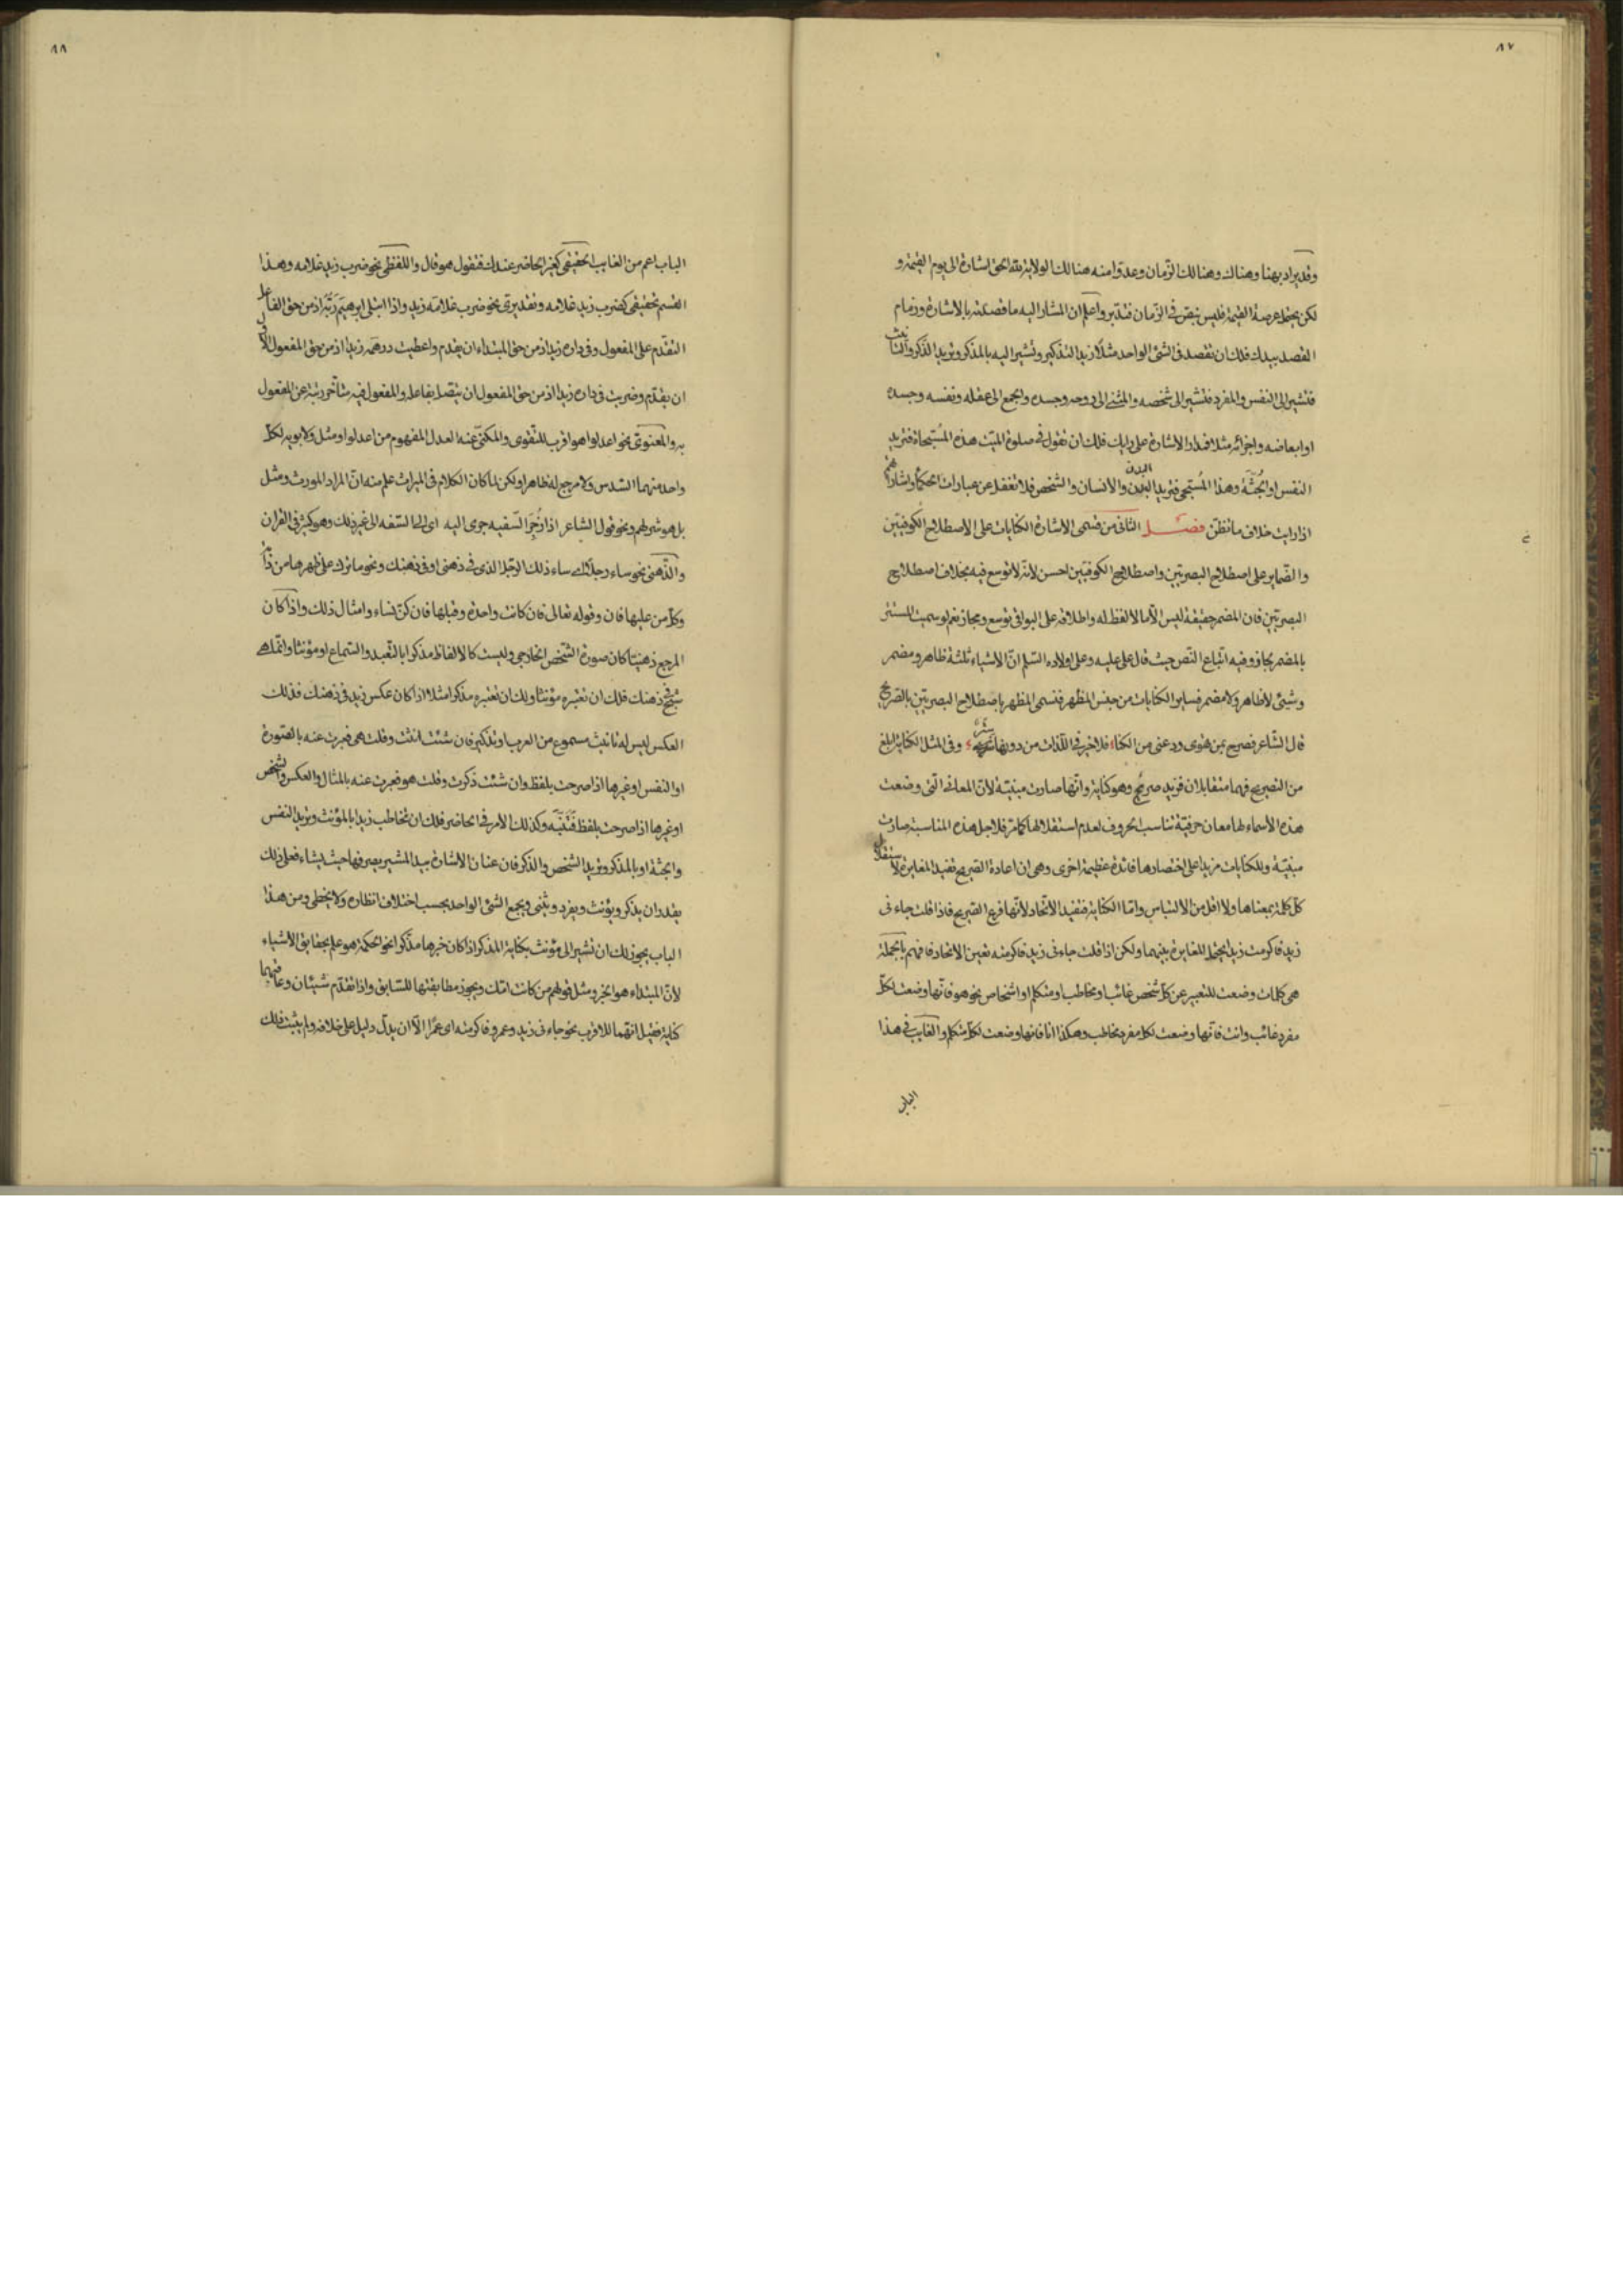 ٨٧
وقد يراد بهنا وهناك وهنالك الزّمان وعدّوا منه هنالك الولاية لله الحق اشارة الى يوم القيمة و
لكن يحتمل عرصة القيمة فليس بنص فى الزّمان فتدبر واعلم ان المشار اليه ما قصدته بالاشارة وزمام
القصد بيدك فلك ان تقصد فى الشئ الواحد مثلا زيد التذكير وتشير اليه بالمذكر وتريد الذكر والتانيث
فتشير الى النفس والمفرد فتشير الى شخصه والمثنى الى روحه وجسده والجمع الى عقله ونفسه وجسده
او ابعاضه واجزائه مثلا فمدار الاشارة على رايك فلك ان تقول فى صلوة الميّت هذه المُسَجّاة فتريد
النفس او الجُثّة وهذا المُسَجّى فتريد البدن والانسان والشخص فلا تغفل عن عبارات الحكماء واشاراتهم
اذا رايت خلاف ما تظنّ فصل الثانى من قسمى الاشارة الكنايات على الاصطلاح الكوفيّين
والضّماير على اصطلاح البصريّين واصطلاح الكوفيّين احسن لانّه لا توسع فيه بخلاف اصطلاح
البصريّين فان المضمر حقيقة ليس الّا ما لا لفظ له واطلاقه على البواقى توسع ومجاز نعم لو سميت المستتر
بالمضمر لجاز وفيه اتّباع النّص حيث قال على عليه وعلى اولاده السّلم انّ الاشياء ثلثة ظاهر ومضمر
وشئ لا ظاهر ولا مضمر فساير الكنايات من جنس المظهر فتسمى المظهر باصطلاح البصريّين بالصّريح
قال الشاعر فصرح بمن تهوى ودعنى من الكنا فلا خير فى اللّذات من دونها ستر وفى المثل الكناية ابلغ
من التصريح فهما متقابلان فزيد صريح وهو كناية وانّها صارت مبنيّة لانّ المعانى الّتى وضعت
هذه الأسماء لها معان حرفيّة تناسب الحروف لعدم استقلالها كما مر فلاجل هذه المناسبة صارت
مبنيّة وللكنايات مزيدا على اختصارها فائدة عظيمة اخرى وهى ان اعادة الصّريح تفيد المغايرة لاستقلال
كلّ كلمة بمعناها ولا اقل من الالتباس وامّا الكناية فتفيد الاتّحاد لانّها فرع الصّريح فاذا قلت جاءنى
زيد فاكرمت زيد يحتمل المغايرة بينهما ولكن اذا قلت جاءنى زيد فاكرمته تعين الاتحاد فافهم بالجملة
هى كلمات وضعت للتعبير عن كلّ شخص غائب او مخاطب او متكلم او اشخاص نحو هو فانّها وضعت لكلّ
مفرد غائب وانت فانّها وضعت لكل مفرد مخاطب وهكذا انا فانها وضعت لكلّ متكلم والغايب فى هذا
الباب
٨٨
الباب اعم من الغايب الحقيقى كغير الحاضر عندك فتقول هو قال واللفظى نحو ضرب زيد غلامه وهذا
القسم تحقيقى كضرب زيد غلامه وتقديرى نحو ضرب غلامَه زيد واذا ابتلى ابرهيم ربّه اذ من حق الفاعل
التقدّم على المفعول وفى داره زيد اذ من حق المبتداء ان يقدم واعطيت درهمه زيدا اذ من حق المفعول الاوّل
ان يقدّم وضربت فى داره زيدا اذ من حق المفعول ان يتّصل بفاعله والمفعول فيه متأخّر رتبة عن المفعول
به والمعنوىّ نحو اعدلوا هو اقرب للتّقوى والمكنّى عنه العدل المفهوم من اعدلوا ومثل ولابويه لكلّ
واحد منهما السّدس ولا مرجع له ظاهرا ولكن لما كان الكلام فى الميراث علم منه انّ المراد المورث ومثل
بل هو شر لهم ونحو قول الشاعر اذا زُجِرَ السّفيه جرى اليه اى الى السّفه الى غير ذلك وهو كثير فى القران
والذّهنى نحو ساء رجلا اى ساء ذلك الرّجل الذى فى ذهنى او فى ذهنك ونحو ما ترك على ظهرها من دابّة
وكلّ من عليها فان وقوله تعالى فان كانت واحدة وقبلها فان كنّ نساء وامثال ذلك واذا كان
المرجع ذهنيّا كان صورة الشّخص الخارجى وليست كالالفاظ مذكرا بالتّعبد والسّماع او مؤنثا وانّما هى
شبح ذهنك فلك ان تعتبره مؤنثا ولك ان تعتبره مذكرا مثلا اذا كان عكس زيد فى ذهنك فذلك
العكس ليس له تانيث مسموع من العرب او تذكير فان شئت انثت وقلت هى فعبرت عنه بالصّورة
او النفس او غيرها اذا صرحت بلفظ وان شئت ذكرت وقلت هو فعبرت عنه بالمثال والعكس والشّخص
او غيرها اذا صرحت بلفظ فَتَنَبَّه وكذلك الأمر فى الحاضر فلك ان تخاطب زيدا بالمؤنث وتريد النفس
والجثة او بالمذكر وتريد الشّخص والذكر فان عنان الاشارة بيد المشير يصرفها حيث يشاء فعلى ذلك
يقدر ان يذكر ويؤنث ويفرد ويثنى ويجمع الشئ الواحد بحسب اختلاف انظاره ولا يخطى ومن هذا
الباب يجوز لك ان تشير الى مؤنث بكناية المذكر اذا كان خبرها مذكرا نحو الحكمة هو علم بحقايق الاشياء
لانّ المبتداء هو الخبر ومثل قولهم من كانت امّك ويجوز مطابقتها للسّابق واذا تقدّم شيئان وعاقبهما
كناية فقيل انّهما للاقرب نحو جاءنى زيد وعمرو فاكرمته اى عمرًا الّا ان يدلّ دليل على خلافه ولم يثبت فلك